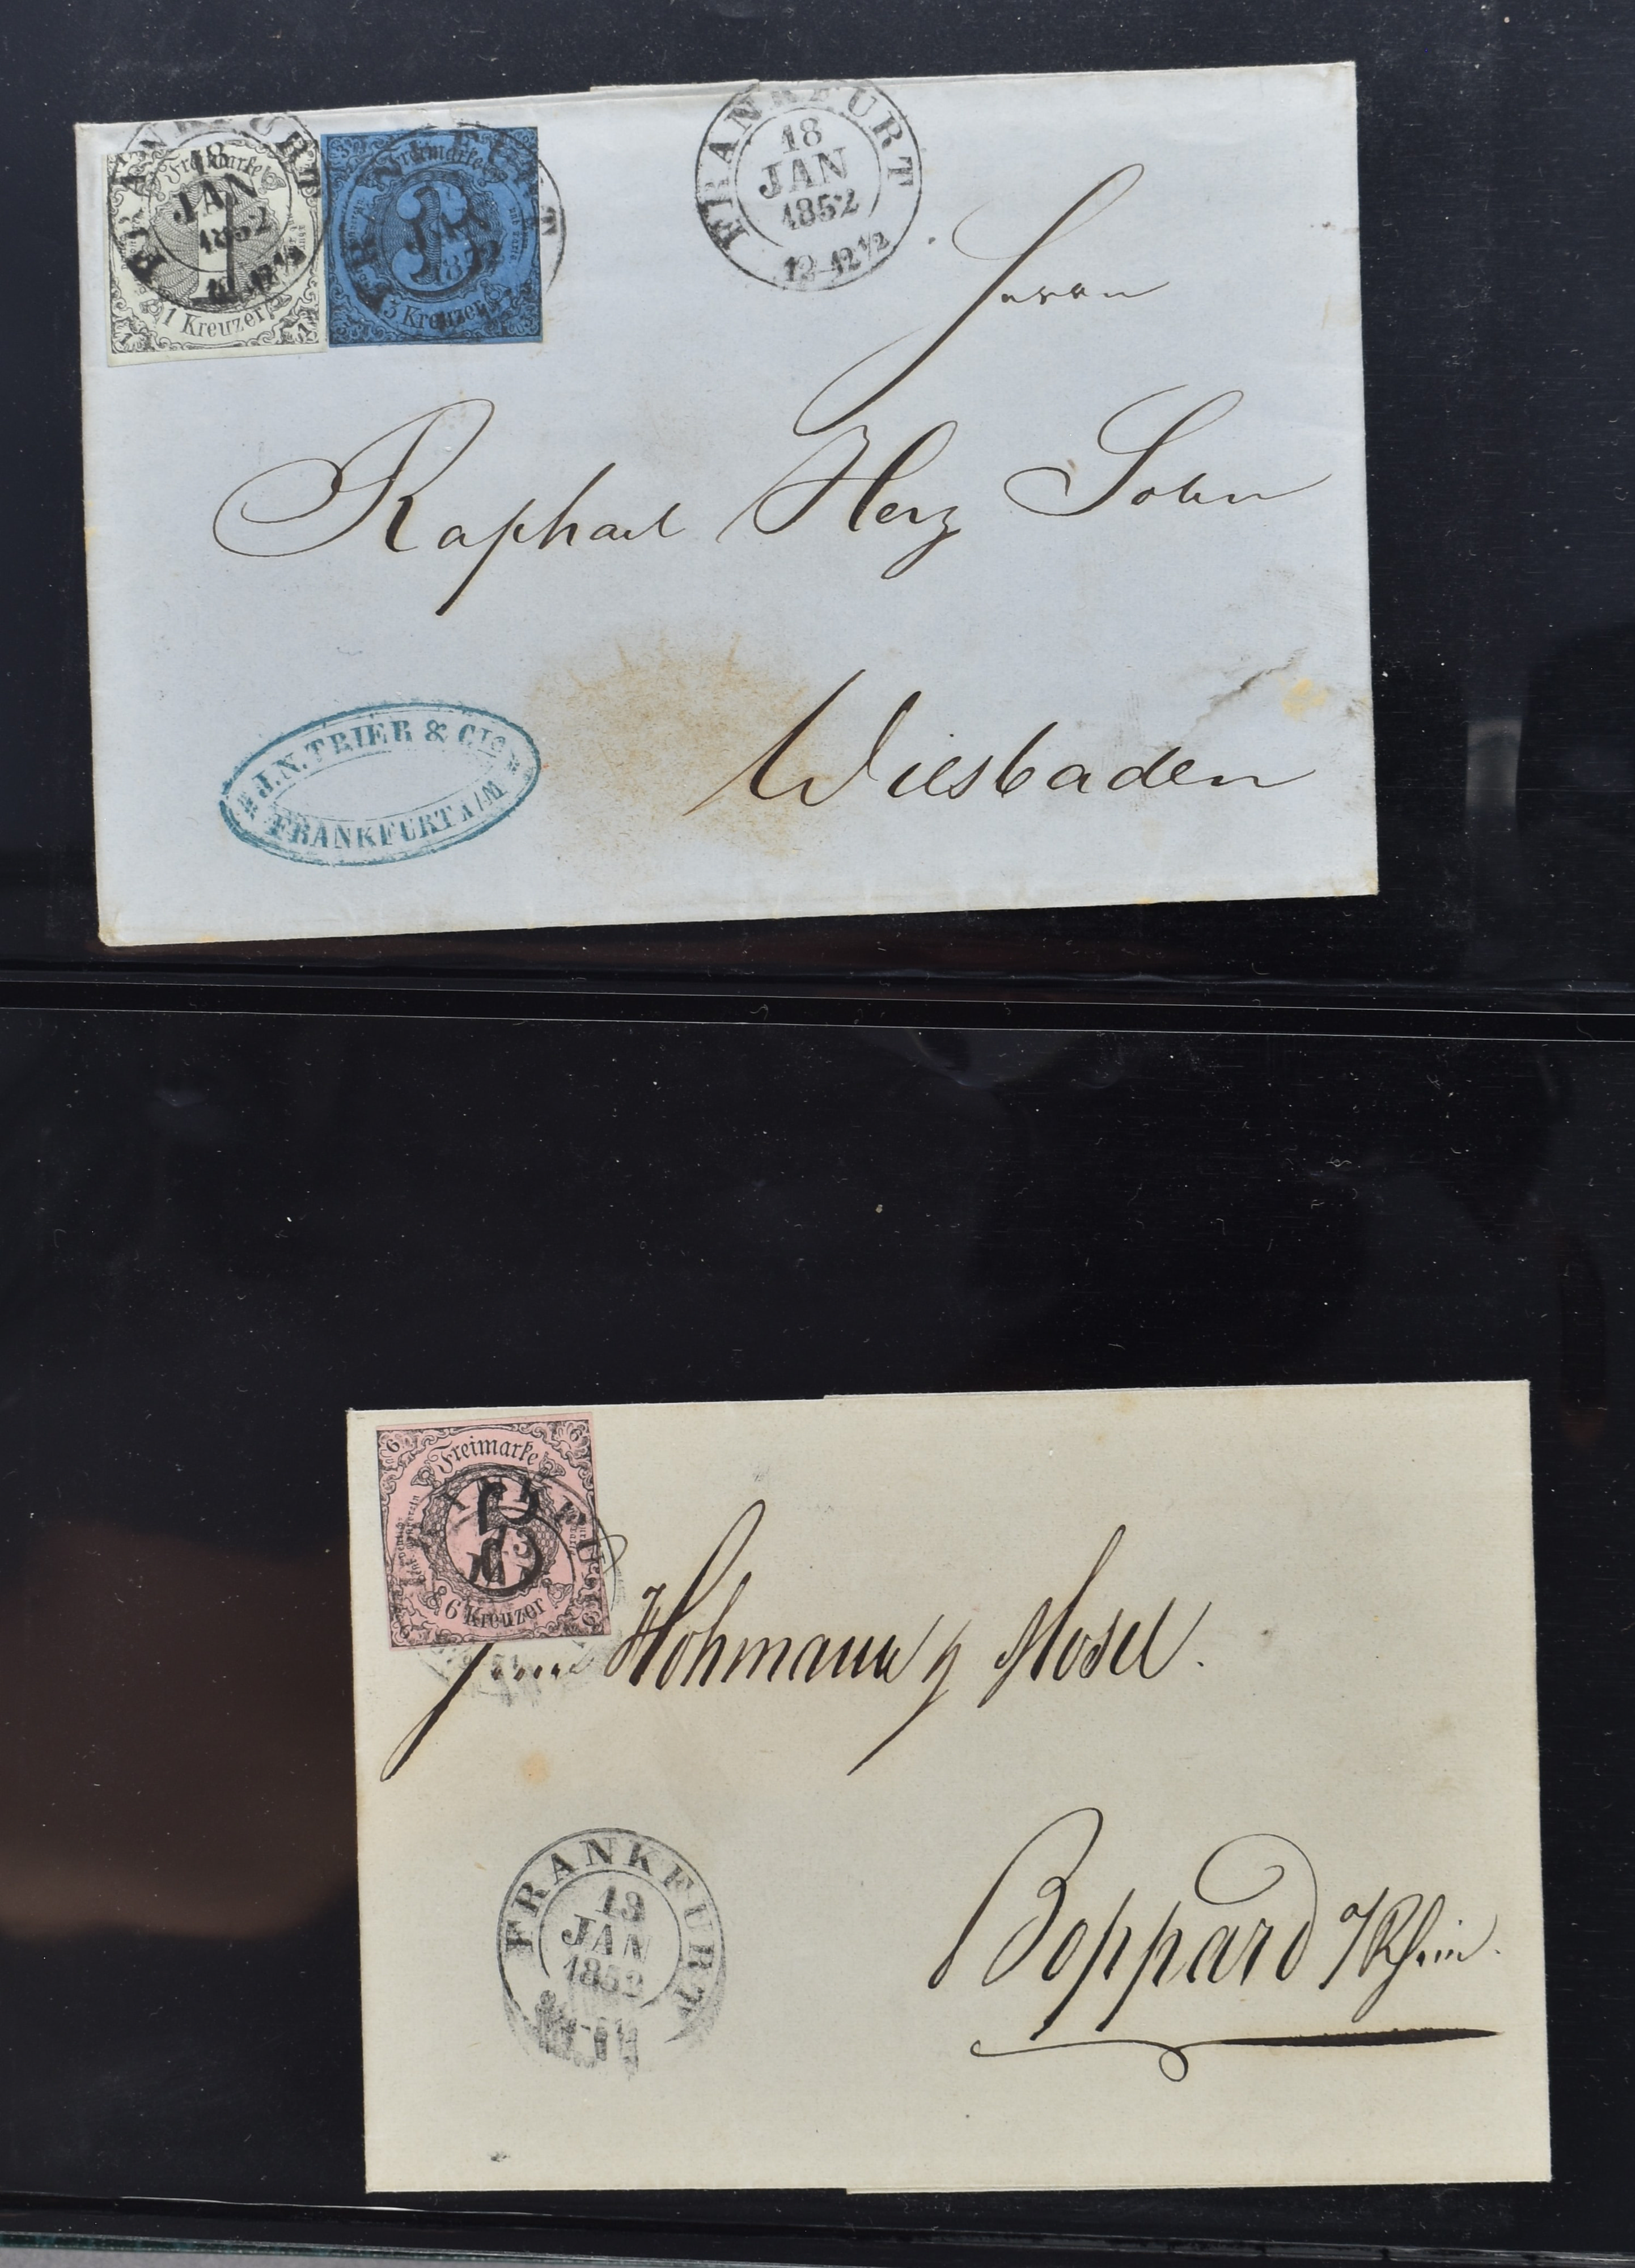 FRANKFURT
18
JAN
1852
12-12½
Freimarke
1
1 Kreuzer
Freimarke
3
JAN
3 Kreuzer
FRANKFURT
18
JAN
1852
12-12½
Herrn
Raphael Herz Sohn
Wiesbaden
J.N. TRIER & CIE
FRANKFURT A/M
6 6
Freimarke
6
13
6 Kreuzer
6 6
Herrn Hohmann & Mosel.
FRANKFURT
13
JAN
1852
Boppard a/Rhein.